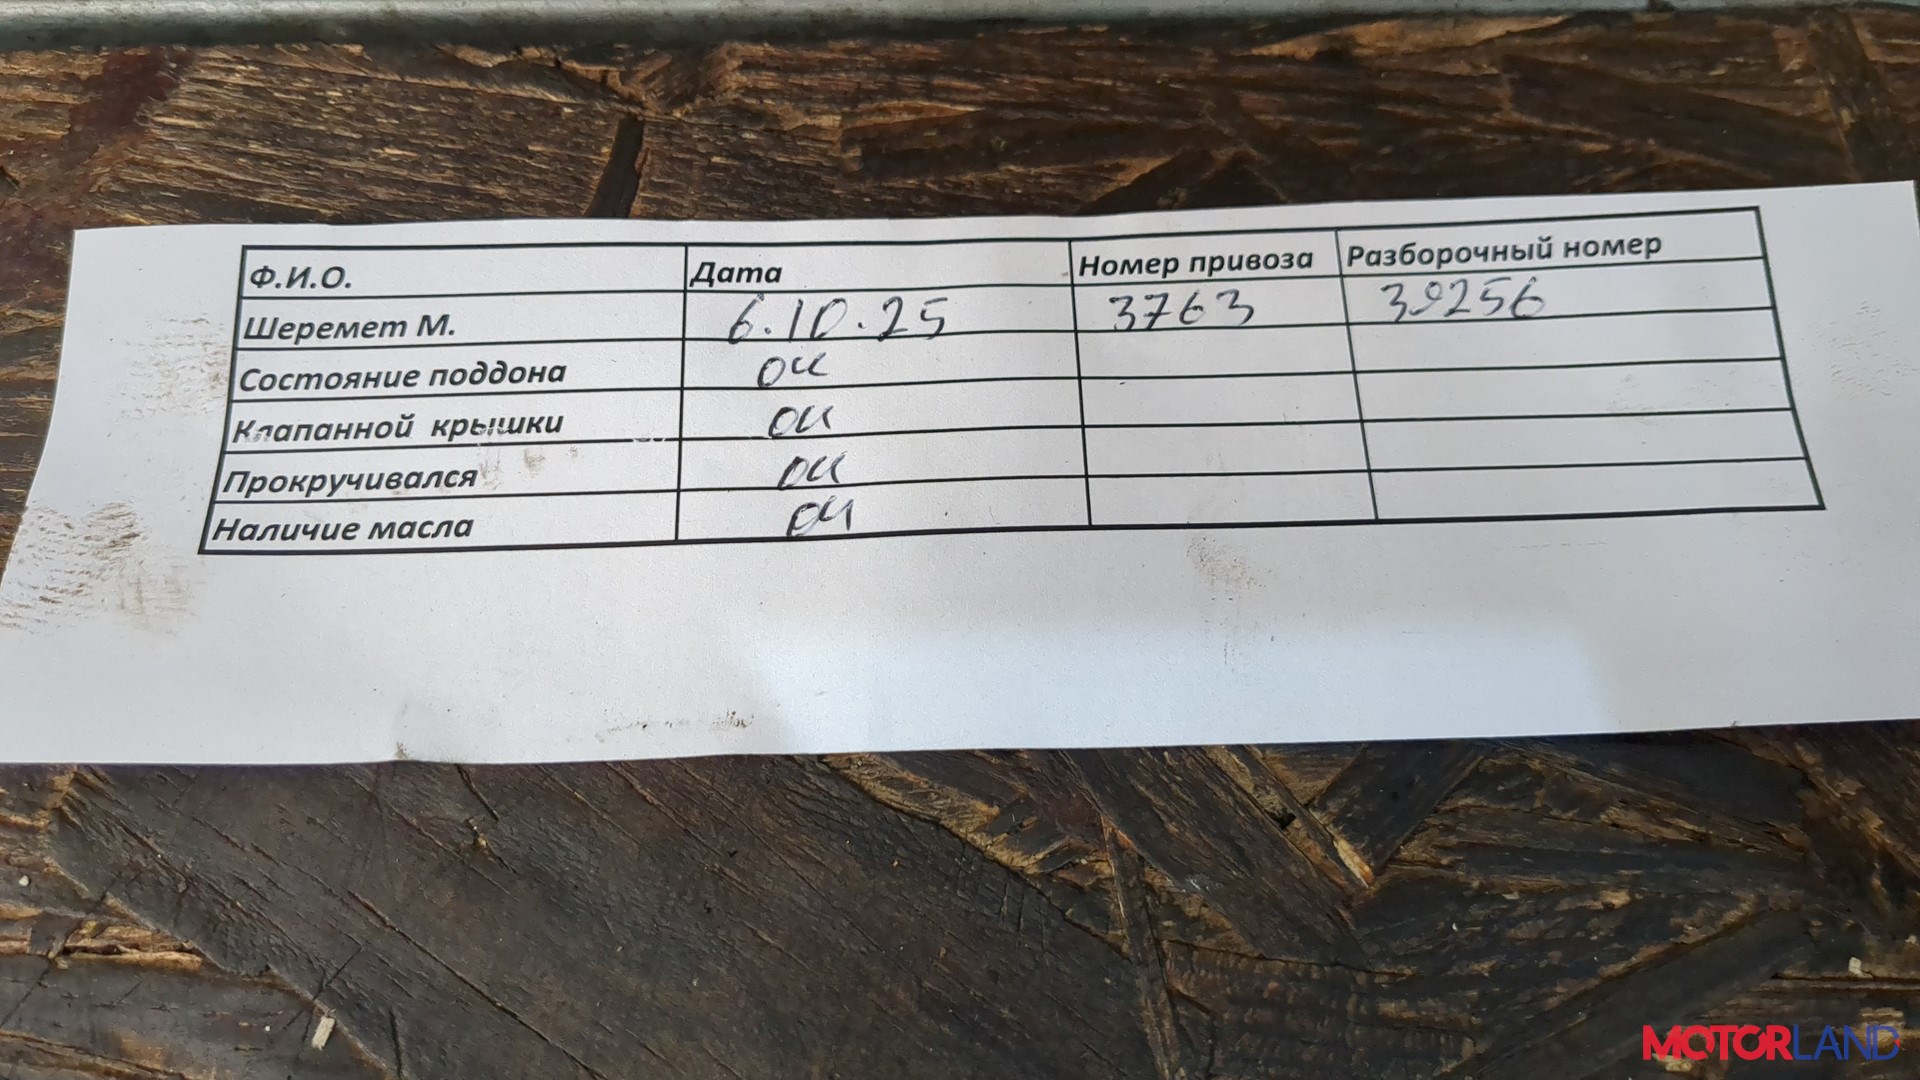 Ф.И.О. Дата Номер привоза Разборочный номер
Шеремет М. 6.10.25 3763 39256
Состояние поддона ок
Клапанной крышки ок
Прокручивался ок
Наличие масла ок
MOTORLAND